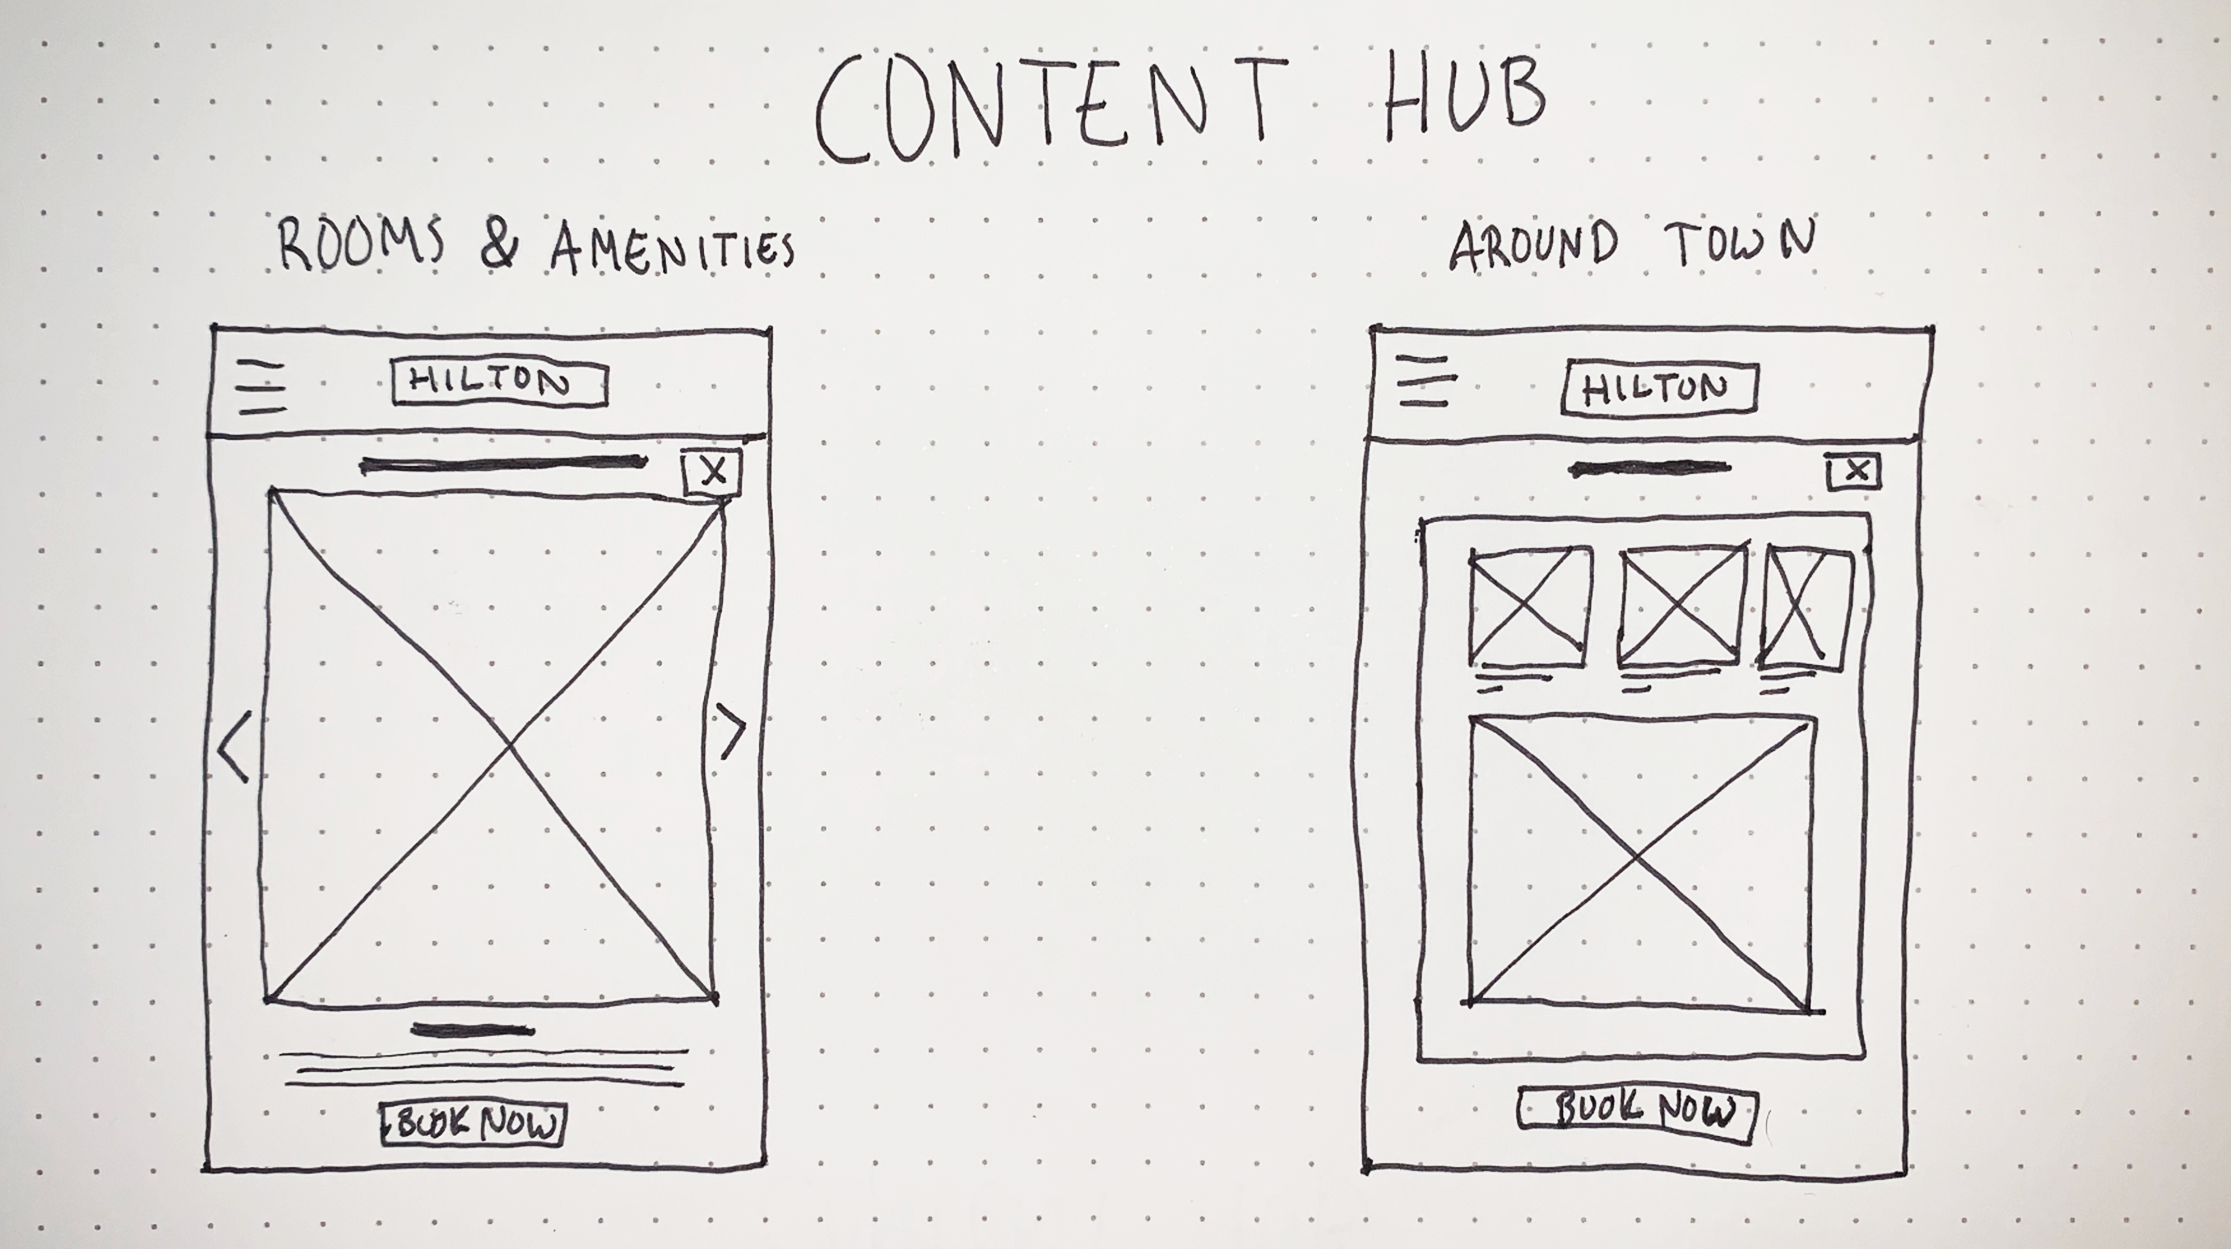 CONTENT HUB
ROOMS & AMENITIES
HILTON
X
BOOK NOW
AROUND TOWN
HILTON
X
BOOK NOW